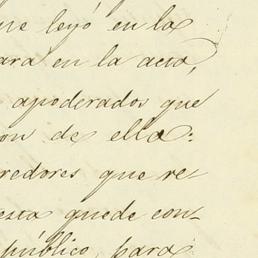 ue leyó en la
ara en la acta,
apoderados que
on de ella:
redores que re-
esta quede con-
público, para